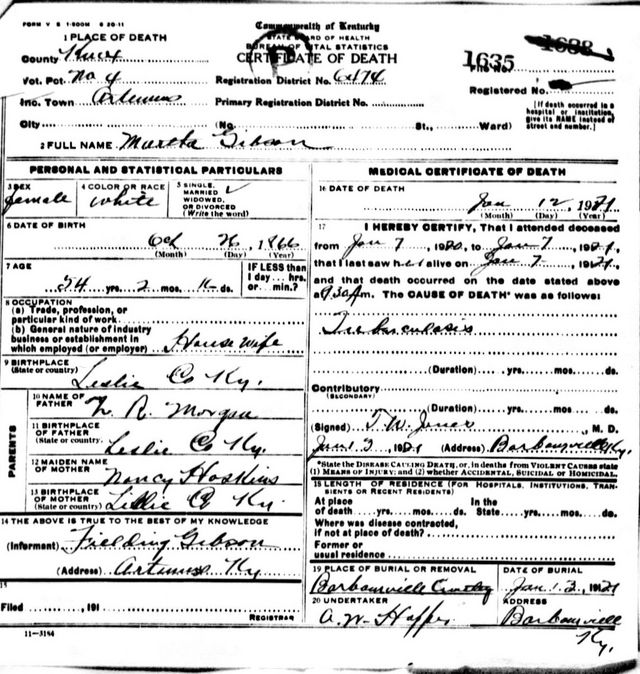 FORM V S 1-500M 8 20-11
Commonwealth of Kentucky
STATE BOARD OF HEALTH
BUREAU OF VITAL STATISTICS
CERTIFICATE OF DEATH
1 PLACE OF DEATH
County Knox
Vot. Pct. No 4
Registration District No. 6174
File No. 1635
Registered No.
Inc. Town Artemus
Primary Registration District No.
[If death occurred in a hospital or institution, give its NAME instead of street and number.]
City (No. St., Ward)
2 FULL NAME Martha Gibson
PERSONAL AND STATISTICAL PARTICULARS
3 SEX female
4 COLOR OR RACE White
5 SINGLE, MARRIED WIDOWED, OR DIVORCED (Write the word)
6 DATE OF BIRTH
Oct 26, 1866
(Month) (Day) (Year)
7 AGE
54 yrs. 2 mos. 16 ds.
IF LESS than 1 day... hrs. or... min.?
8 OCCUPATION
(a) Trade, profession, or particular kind of work
(b) General nature of industry business or establishment in which employed (or employer) House wife
9 BIRTHPLACE (State or country) Leslie Co Ky.
PARENTS
10 NAME OF FATHER R. Morgan
11 BIRTHPLACE OF FATHER (State or country) Leslie Co Ky.
12 MAIDEN NAME OF MOTHER Nancy Hoskins
13 BIRTHPLACE OF MOTHER (State or country) Leslie Co Ky.
14 THE ABOVE IS TRUE TO THE BEST OF MY KNOWLEDGE
(Informant) Fielding Gibson
(Address) Artemus Ky
15
Filed , 191
REGISTRAR
11-3184
MEDICAL CERTIFICATE OF DEATH
16 DATE OF DEATH
Jan 12, 1921
(Month) (Day) (Year)
17 I HEREBY CERTIFY, That I attended deceased
from Jan 7, 1920, to Jan 7, 1921,
that I last saw her alive on Jan 7, 1921,
and that death occurred on the date stated above
at 930 A m. The CAUSE OF DEATH* was as follows:
Tuberculosis
(Duration) yrs. mos. ds.
Contributory
(SECONDARY)
(Duration) yrs. mos. ds.
(Signed) T. W. Jones, M. D.
(Address) Barbourville Ky.
*State the DISEASE CAUSING DEATH, or, in deaths from VIOLENT CAUSES state
(1) MEANS OF INJURY; and (2) whether ACCIDENTAL, SUICIDAL or HOMICIDAL.
18 LENGTH OF RESIDENCE (FOR HOSPITALS, INSTITUTIONS, TRANSIENTS OR RECENT RESIDENTS)
At place of death yrs. mos. ds.
In the State yrs. mos. ds.
Where was disease contracted, if not at place of death?
Former or usual residence
19 PLACE OF BURIAL OR REMOVAL
Barbourville Cemetery
DATE OF BURIAL
Jan. 13, 1921
20 UNDERTAKER
A. W. Hopper
ADDRESS
Barbourville
Ky.